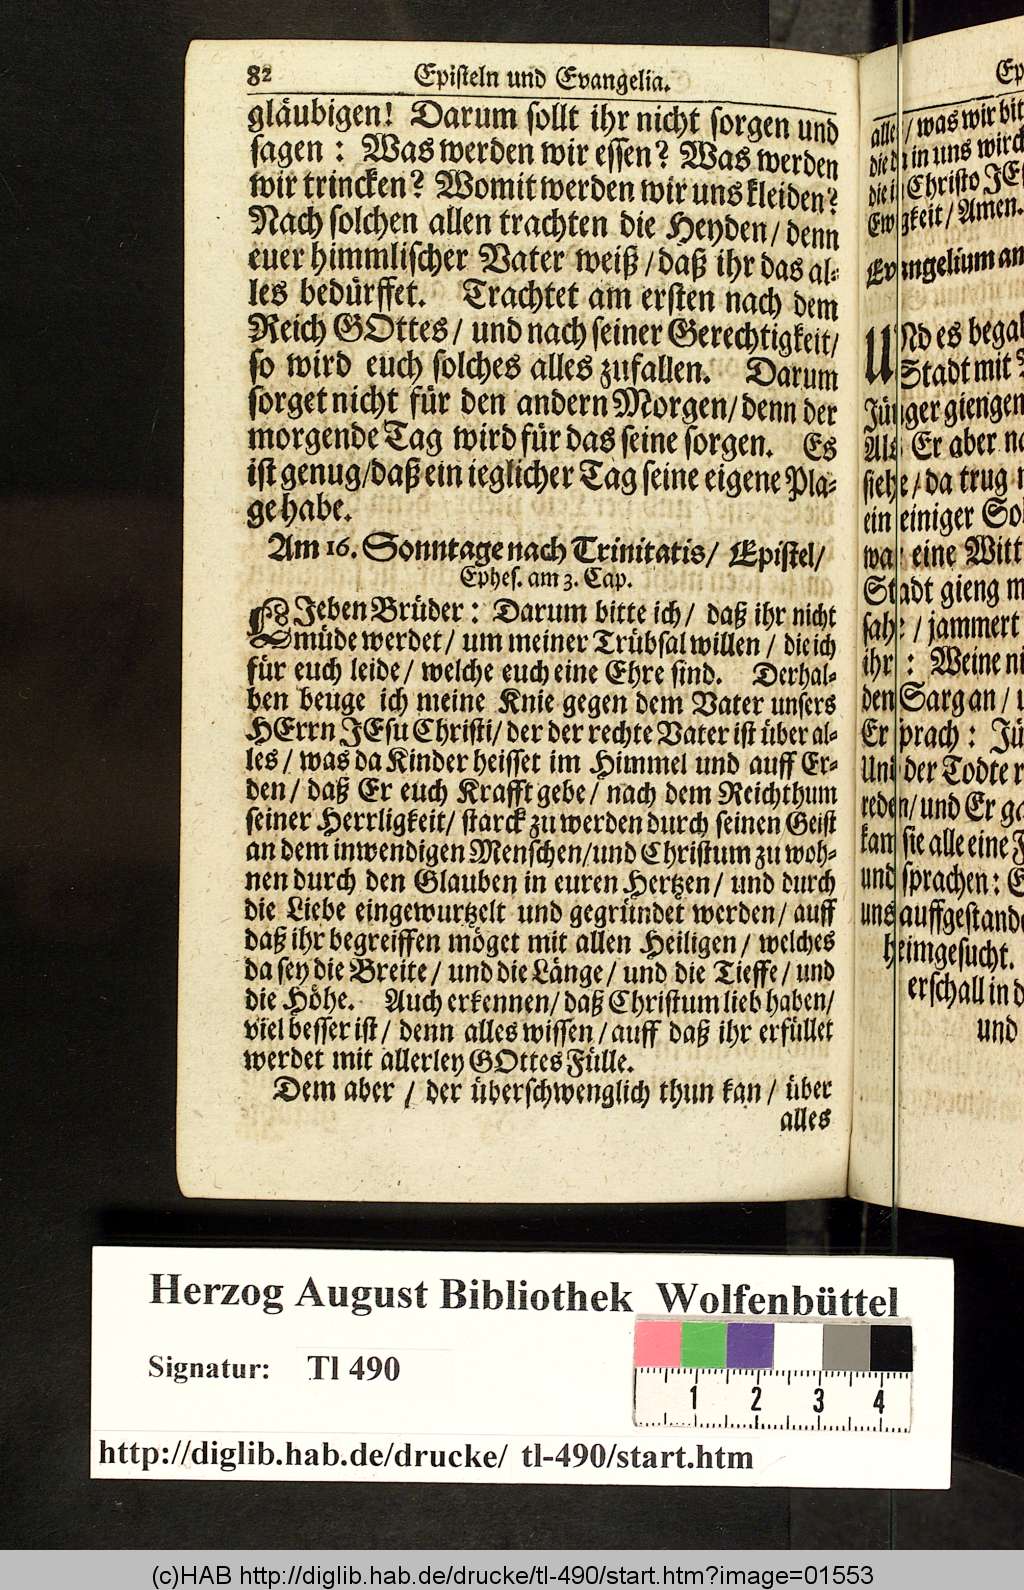 82 Episteln und Evangelia.
gläubigen! Darum sollt ihr nicht sorgen und
sagen : Was werden wir essen? Was werden
wir trincken? Womit werden wir uns kleiden?
Nach solchen allen trachten die Heyden/ denn
euer himmlischer Vater weiß/ daß ihr das al-
les bedürffet. Trachtet am ersten nach dem
Reich GOttes/ und nach seiner Gerechtigkeit/
so wird euch solches alles zufallen. Darum
sorget nicht für den andern Morgen/ denn der
morgende Tag wird für das seine sorgen. Es
ist genug/ daß ein ieglicher Tag seine eigene Pla-
ge habe.
Am 16. Sonntage nach Trinitatis/ Epistel/
Ephes. am 3. Cap.
LIeben Brüder : Darum bitte ich/ daß ihr nicht
müde werdet/ um meiner Trübsal willen/ die ich
für euch leide/ welche euch eine Ehre sind. Derhal-
ben beuge ich meine Knie gegen dem Vater unsers
HErrn JEsu Christi/ der der rechte Vater ist über al-
les/ was da Kinder heisset im Himmel und auff Er-
den/ daß Er euch Krafft gebe/ nach dem Reichthum
seiner Herrligkeit/ starck zu werden durch seinen Geist
an dem inwendigen Menschen/ und Christum zu woh-
nen durch den Glauben in euren Hertzen/ und durch
die Liebe eingewurtzelt und gegründet werden/ auff
daß ihr begreiffen möget mit allen Heiligen/ welches
da sey die Breite/ und die Länge/ und die Tieffe/ und
die Höhe. Auch erkennen/ daß Christum lieb haben/
viel besser ist/ denn alles wissen/ auff daß ihr erfüllet
werdet mit allerley GOttes Fülle.
Dem aber/ der überschwenglich thun kan/ über
alles
Ep
/ was wir bit
in uns wirck
Christo JEs
Ewigkeit/ Amen.
Evangelium am
UNd es begab
Stadt mit
Jünger giengen
Als Er aber na
siehe/ da trug m
ein einiger So
war eine Witt
Stadt gieng m
sahe/ jammert
ihr : Weine ni
den Sarg an/ u
Er sprach : Jü
Und der Todte r
reden/ und Er ga
kam sie alle eine F
und sprachen: E
uns auffgestande
heimgesucht.
erschall in d
und
Herzog August Bibliothek Wolfenbüttel
Signatur: Tl 490
1 2 3 4
http://diglib.hab.de/drucke/ tl-490/start.htm
(c)HAB http://diglib.hab.de/drucke/tl-490/start.htm?image=01553